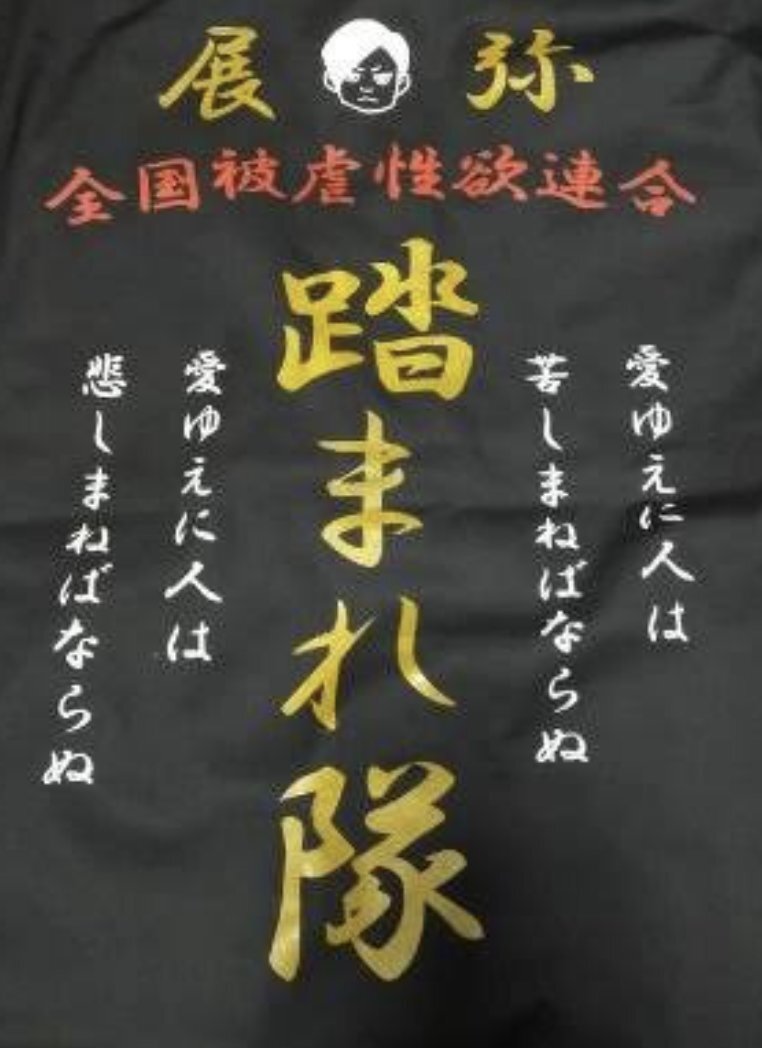 展弥
全国被虐性欲連合
踏まれ隊
愛ゆえに人は
苦しまねばならぬ
愛ゆえに人は
悲しまねばならぬ